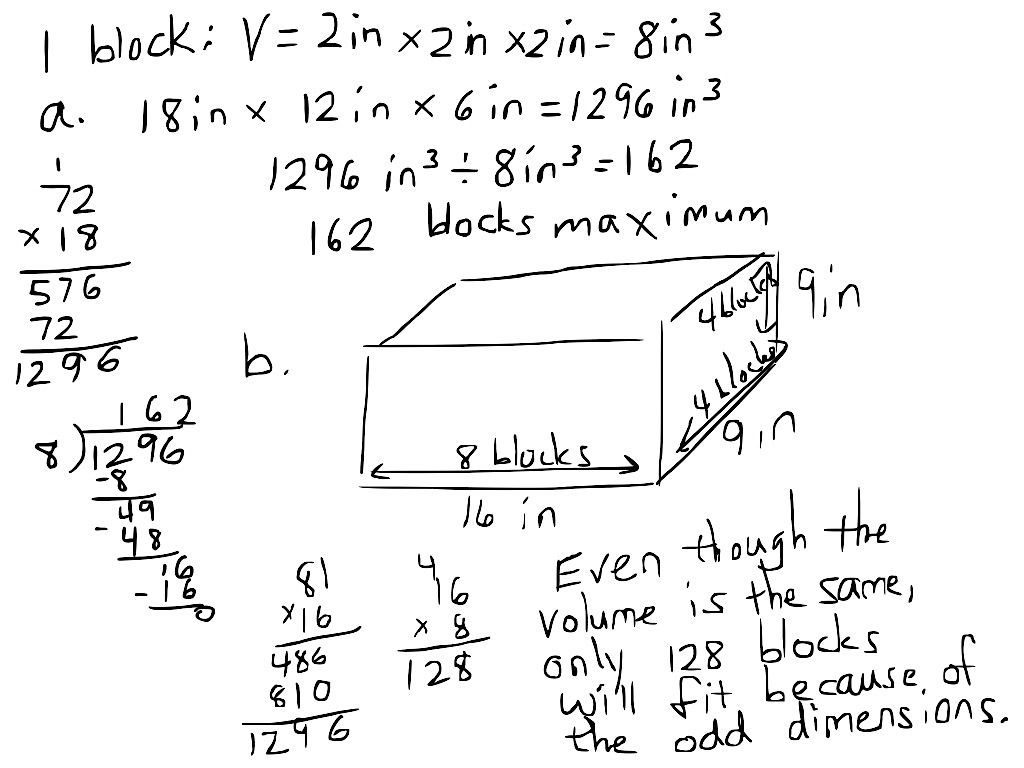 1 block: V = 2in × 2in × 2in = 8in³
a. 18in × 12in × 6in = 1296 in³
1296 in³ ÷ 8in³ = 162
162 blocks maximum
1
72
× 18
576
72
1296
162
8)1296
-8
49
-48
16
-16
0
b.
4 blocks
9in
4 blocks
9in
8 blocks
16 in
81
×16
486
810
1296
4
16
× 8
128
Even though the
volume is the same,
only 128 blocks
will fit because of
the odd dimensions.